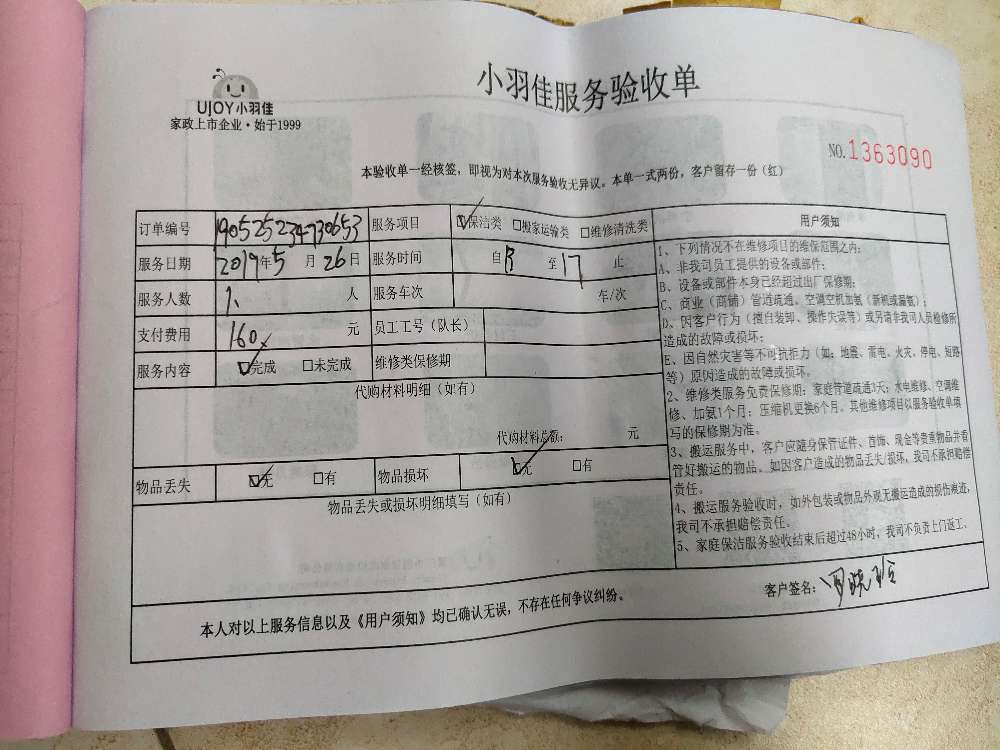 小羽佳服务验收单
UJOY小羽佳
家政上市企业·始于1999
NO.1363090
本验收单一经核签，即视为对本次服务验收无异议。本单一式两份，客户留存一份（红）
订单编号 190525234730653 服务项目 ☑保洁类 □搬家运输类 □维修清洗类
服务日期 2019年5月26日 服务时间 自13至17止
服务人数 1、人 服务车次 车/次
支付费用 160 元 员工工号（队长）
服务内容 ☑完成 □未完成 维修类保修期
代购材料明细（如有）
代购材料总额： 元
物品丢失 ☑无 □有 物品损坏 ☑无 □有
物品丢失或损坏明细填写（如有）
用户须知
1、下列情况不在维修项目的维保范围之内：
A、非我司员工提供的设备或部件；
B、设备或部件本身已经超过出厂保修期；
C、商业（商铺）管道疏通、空调空机加氨（新机或漏氨）；
D、因客户行为（擅自装卸、操作失误等）或另请非我司人员检修所
造成的故障或损坏；
E、因自然灾害等不可抗拒力（如：地震、雷电、火灾、停电、短路
等）原因造成的故障或损坏。
2、维修类服务免费保修期：家庭管道疏通3天；水电维修、空调维
修、加氨1个月；压缩机更换6个月。其他维修项目以服务验收单填
写的保修期为准。
3、搬运服务中，客户应随身保管证件、首饰、现金等贵重物品并看
管好搬运的物品。如因客户造成的物品丢失/损坏，我司不承担赔偿
责任。
4、搬运服务验收时，如外包装或物品外观无搬运造成的损伤痕迹，
我司不承担赔偿责任。
5、家庭保洁服务验收结束后超过48小时，我司不负责上门返工。
本人对以上服务信息以及《用户须知》均已确认无误，不存在任何争议纠纷。
客户签名：罗晓玲